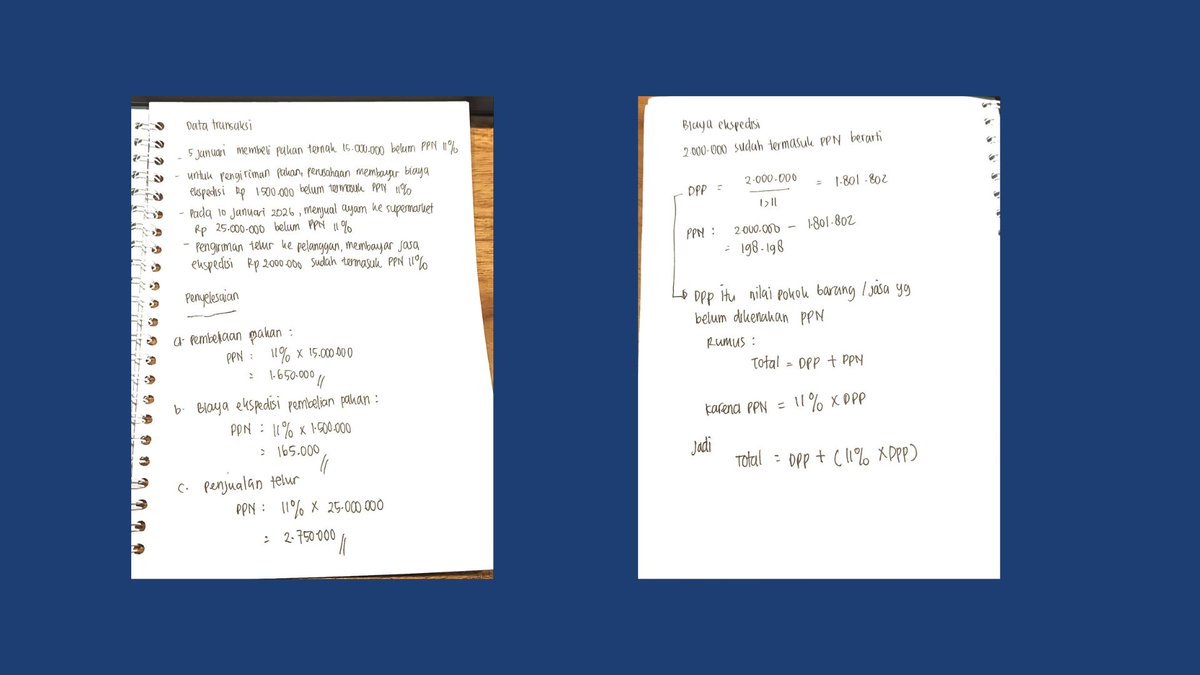 Data transaksi
- 5 Januari membeli pakan ternak 15.000.000 belum PPN 11%
- untuk pengiriman pakan, perusahaan membayar biaya
ekspedisi Rp 1.500.000 belum termasuk PPN 11%
- Pada 10 Januari 2026, menjual ayam ke supermarket
Rp 25.000.000 belum PPN 11%
- Pengiriman telur ke pelanggan, membayar jasa
ekspedisi Rp 2.000.000 sudah termasuk PPN 11%
Penyelesaian
a. Pembelian pakan :
PPN : 11% x 15.000.000
= 1.650.000 //
b. Biaya ekspedisi pembelian pakan :
PPN : 11% x 1.500.000
= 165.000 //
c. Penjualan telur
PPN : 11% x 25.000.000
= 2.750.000 //
Biaya ekspedisi
2.000.000 sudah termasuk PPN berarti
DPP = 2.000.000 / 1,11 = 1.801.802
PPN : 2.000.000 - 1.801.802
= 198.198
DPP itu nilai pokok barang / jasa yg
belum dikenakan PPN
Rumus :
Total = DPP + PPN
karena PPN = 11% x DPP
Jadi
Total = DPP + (11% x DPP)